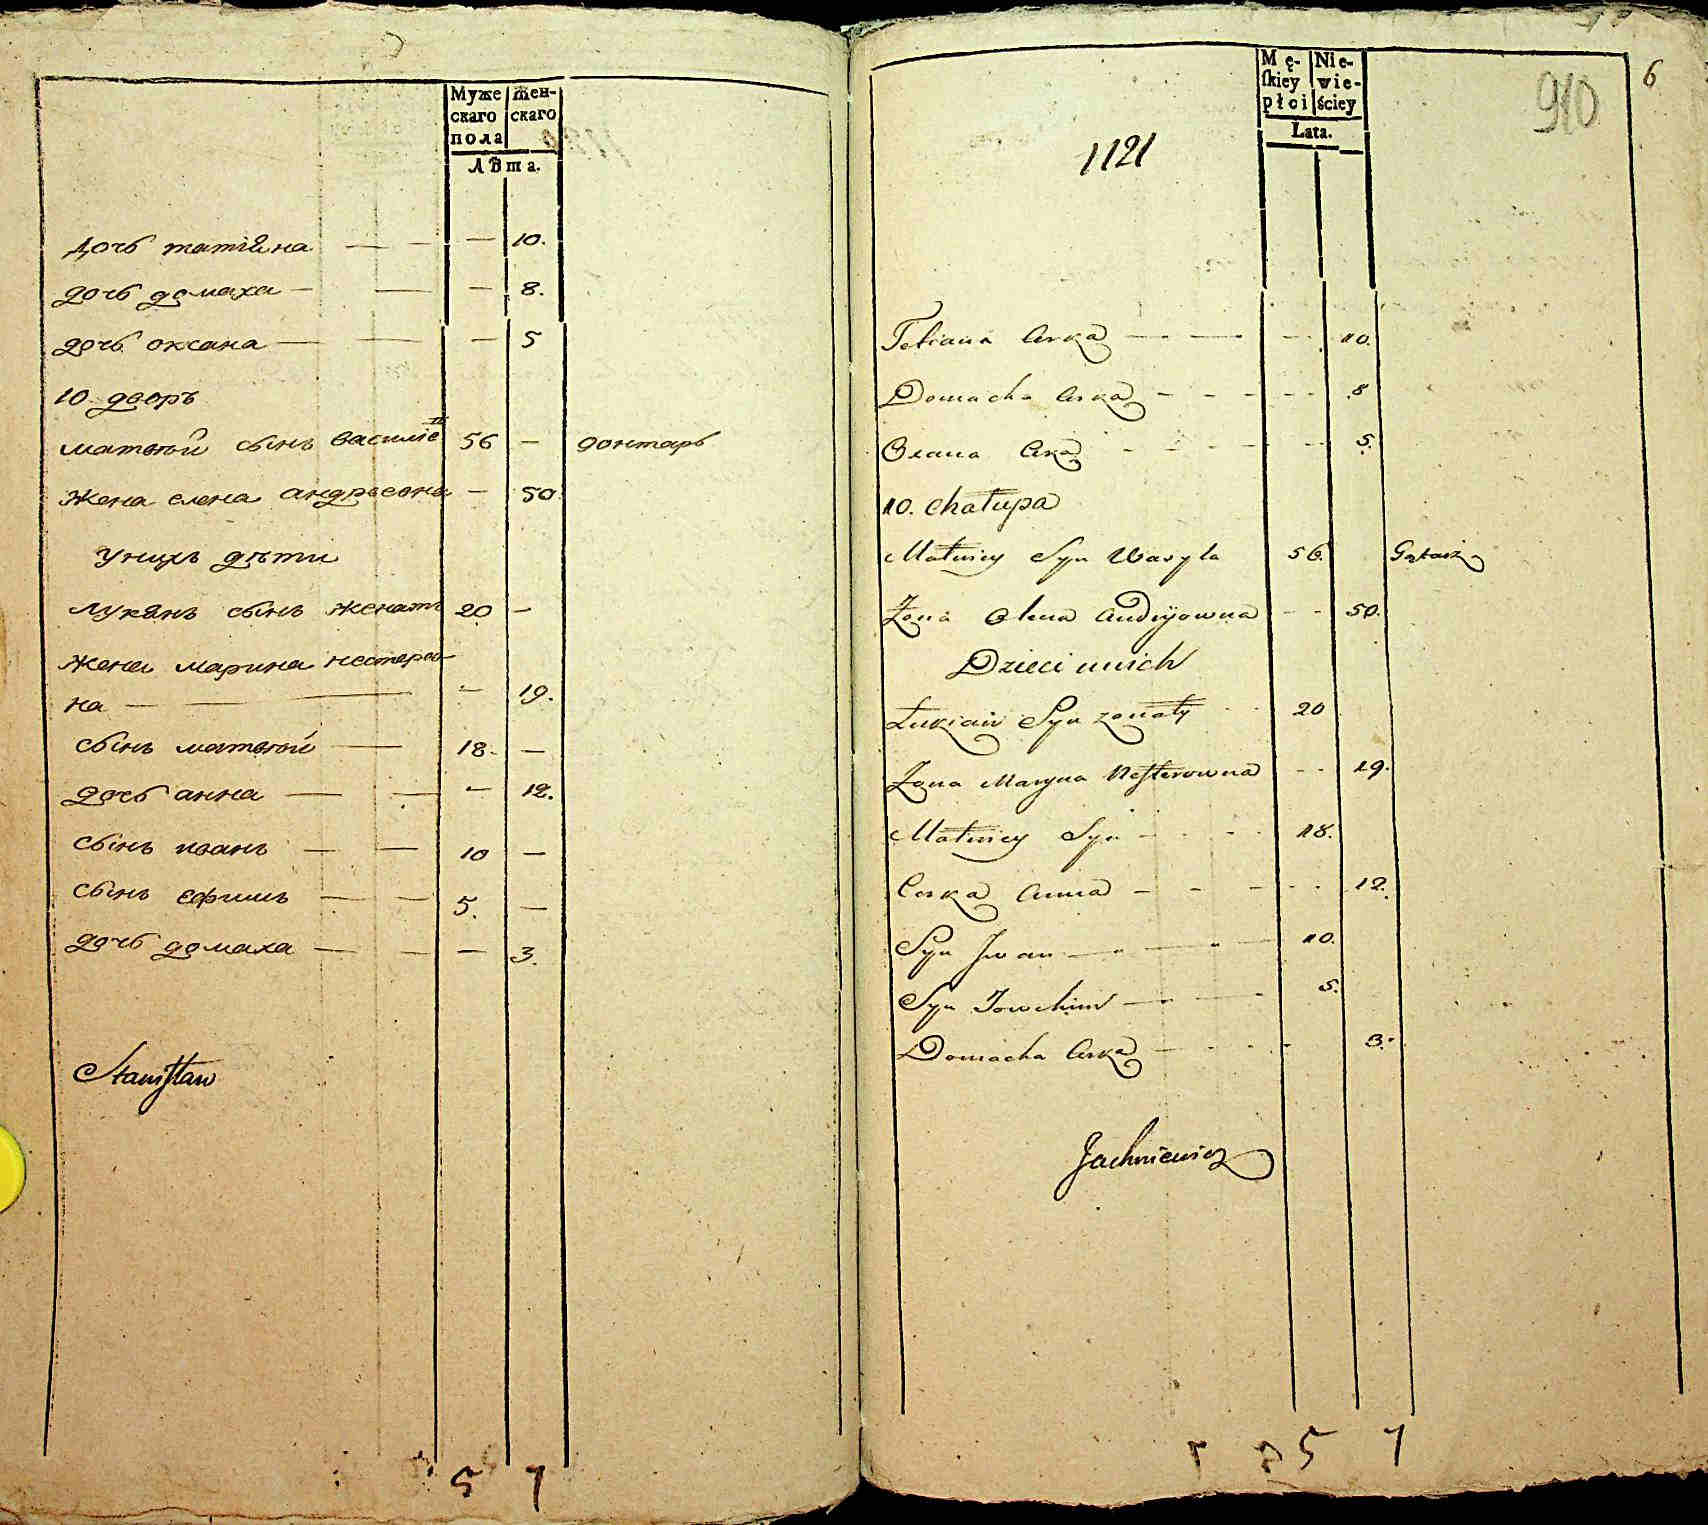 Муже Жен-
скаго скаго
пола
Лѣта.
дочь татіяна — — — 10.
дочь домаха — — — 8.
дочь оксана — — — 5
10 дворъ
матвѣй сынъ василіе 56 — гонтарь
жена елена андрѣевна — 50.
унихъ дѣти
лукянъ сынъ женатъ 20 —
жена марина нестеров-
на — — — 19.
сынъ матвѣй — 18. —
дочь анна — — — 12.
сынъ иванъ — — 10 —
сынъ ефимъ — — 5. —
дочь домаха — — — 3.
Stanisław
5 7
6
910
1121
Mę- Nie-
ſkiey wie-
płci ściey
Lata.
Tetiana Curka — — — 10.
Domacha Curka - - - 8
Oxana Curka - - - 5.
10. Chałupa
Matwiey Syn Wasyla 56. Gątarz
Żona Olena Andryiowna - - 50.
Dzieci unich
Łukian Syn żonaty 20
Żona Maryna Neſterowna - - 19.
Matwiey Syn - - - 18.
Curka Anna - - - 12.
Syn Jwan — — 10.
Syn Jowchim — — 5.
Domacha Curka - - - 3.
Jachniewicz
5 7